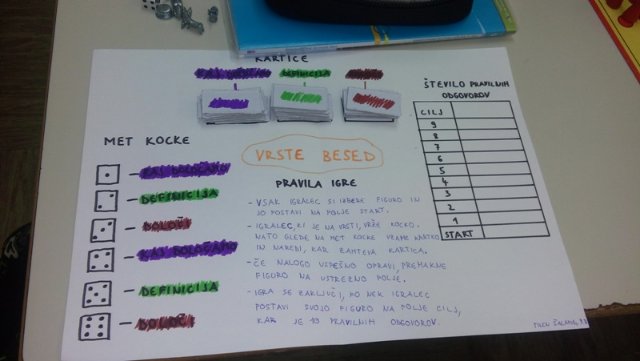 KARTICE
KAJ DOLOČAMO
DEFINICIJA
DOLOČI
ŠTEVILO PRAVILNIH
ODGOVOROV
CILJ
9
8
7
6
5
4
3
2
1
START
MET KOCKE
- KAJ DOLOČAMO
- DEFINICIJA
- DOLOČI
- KAJ DOLOČAMO
- DEFINICIJA
- DOLOČI
VRSTE BESED
PRAVILA IGRE
- VSAK IGRALEC SI IZBERE FIGURO IN
JO POSTAVI NA POLJE START.
- IGRALEC, KI JE NA VRSTI, VRŽE KOCKO.
NATO GLEDE NA MET KOCKE VZAME KARTICO
IN NAREDI, KAR ZAHTEVA KARTICA.
- ČE NALOGO USPEŠNO OPRAVI, PREMAKNE
FIGURO NA USTREZNO POLJE.
- IGRA SE ZAKLJUČI, KO NEK IGRALEC
POSTAVI SVOJO FIGURO NA POLJE CILJ,
KAR JE 10 PRAVILNIH ODGOVOROV.